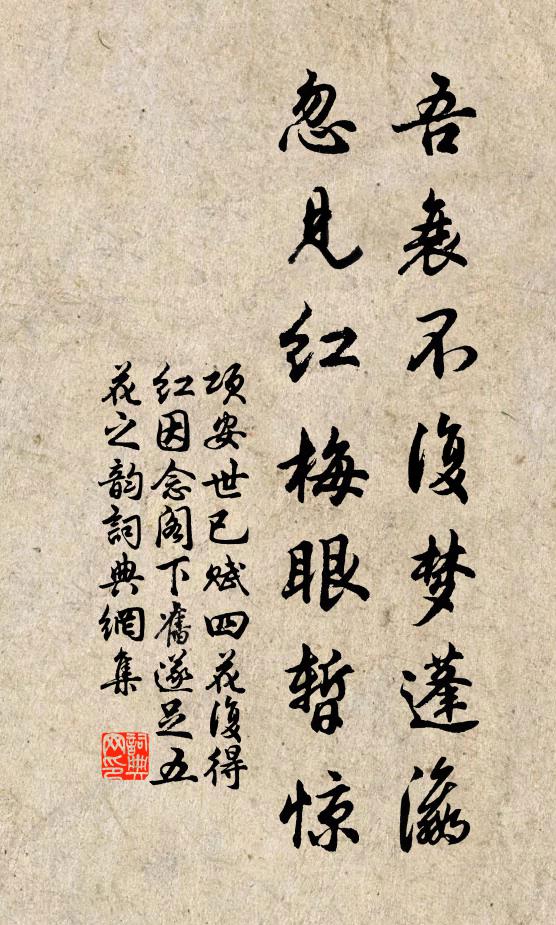 吾衰不復梦蓬瀛
忽見红梅眼暫惊
項安世已赋四花復得
红因念阁下舊遂足五
花之韵詞典網集
詞典网印